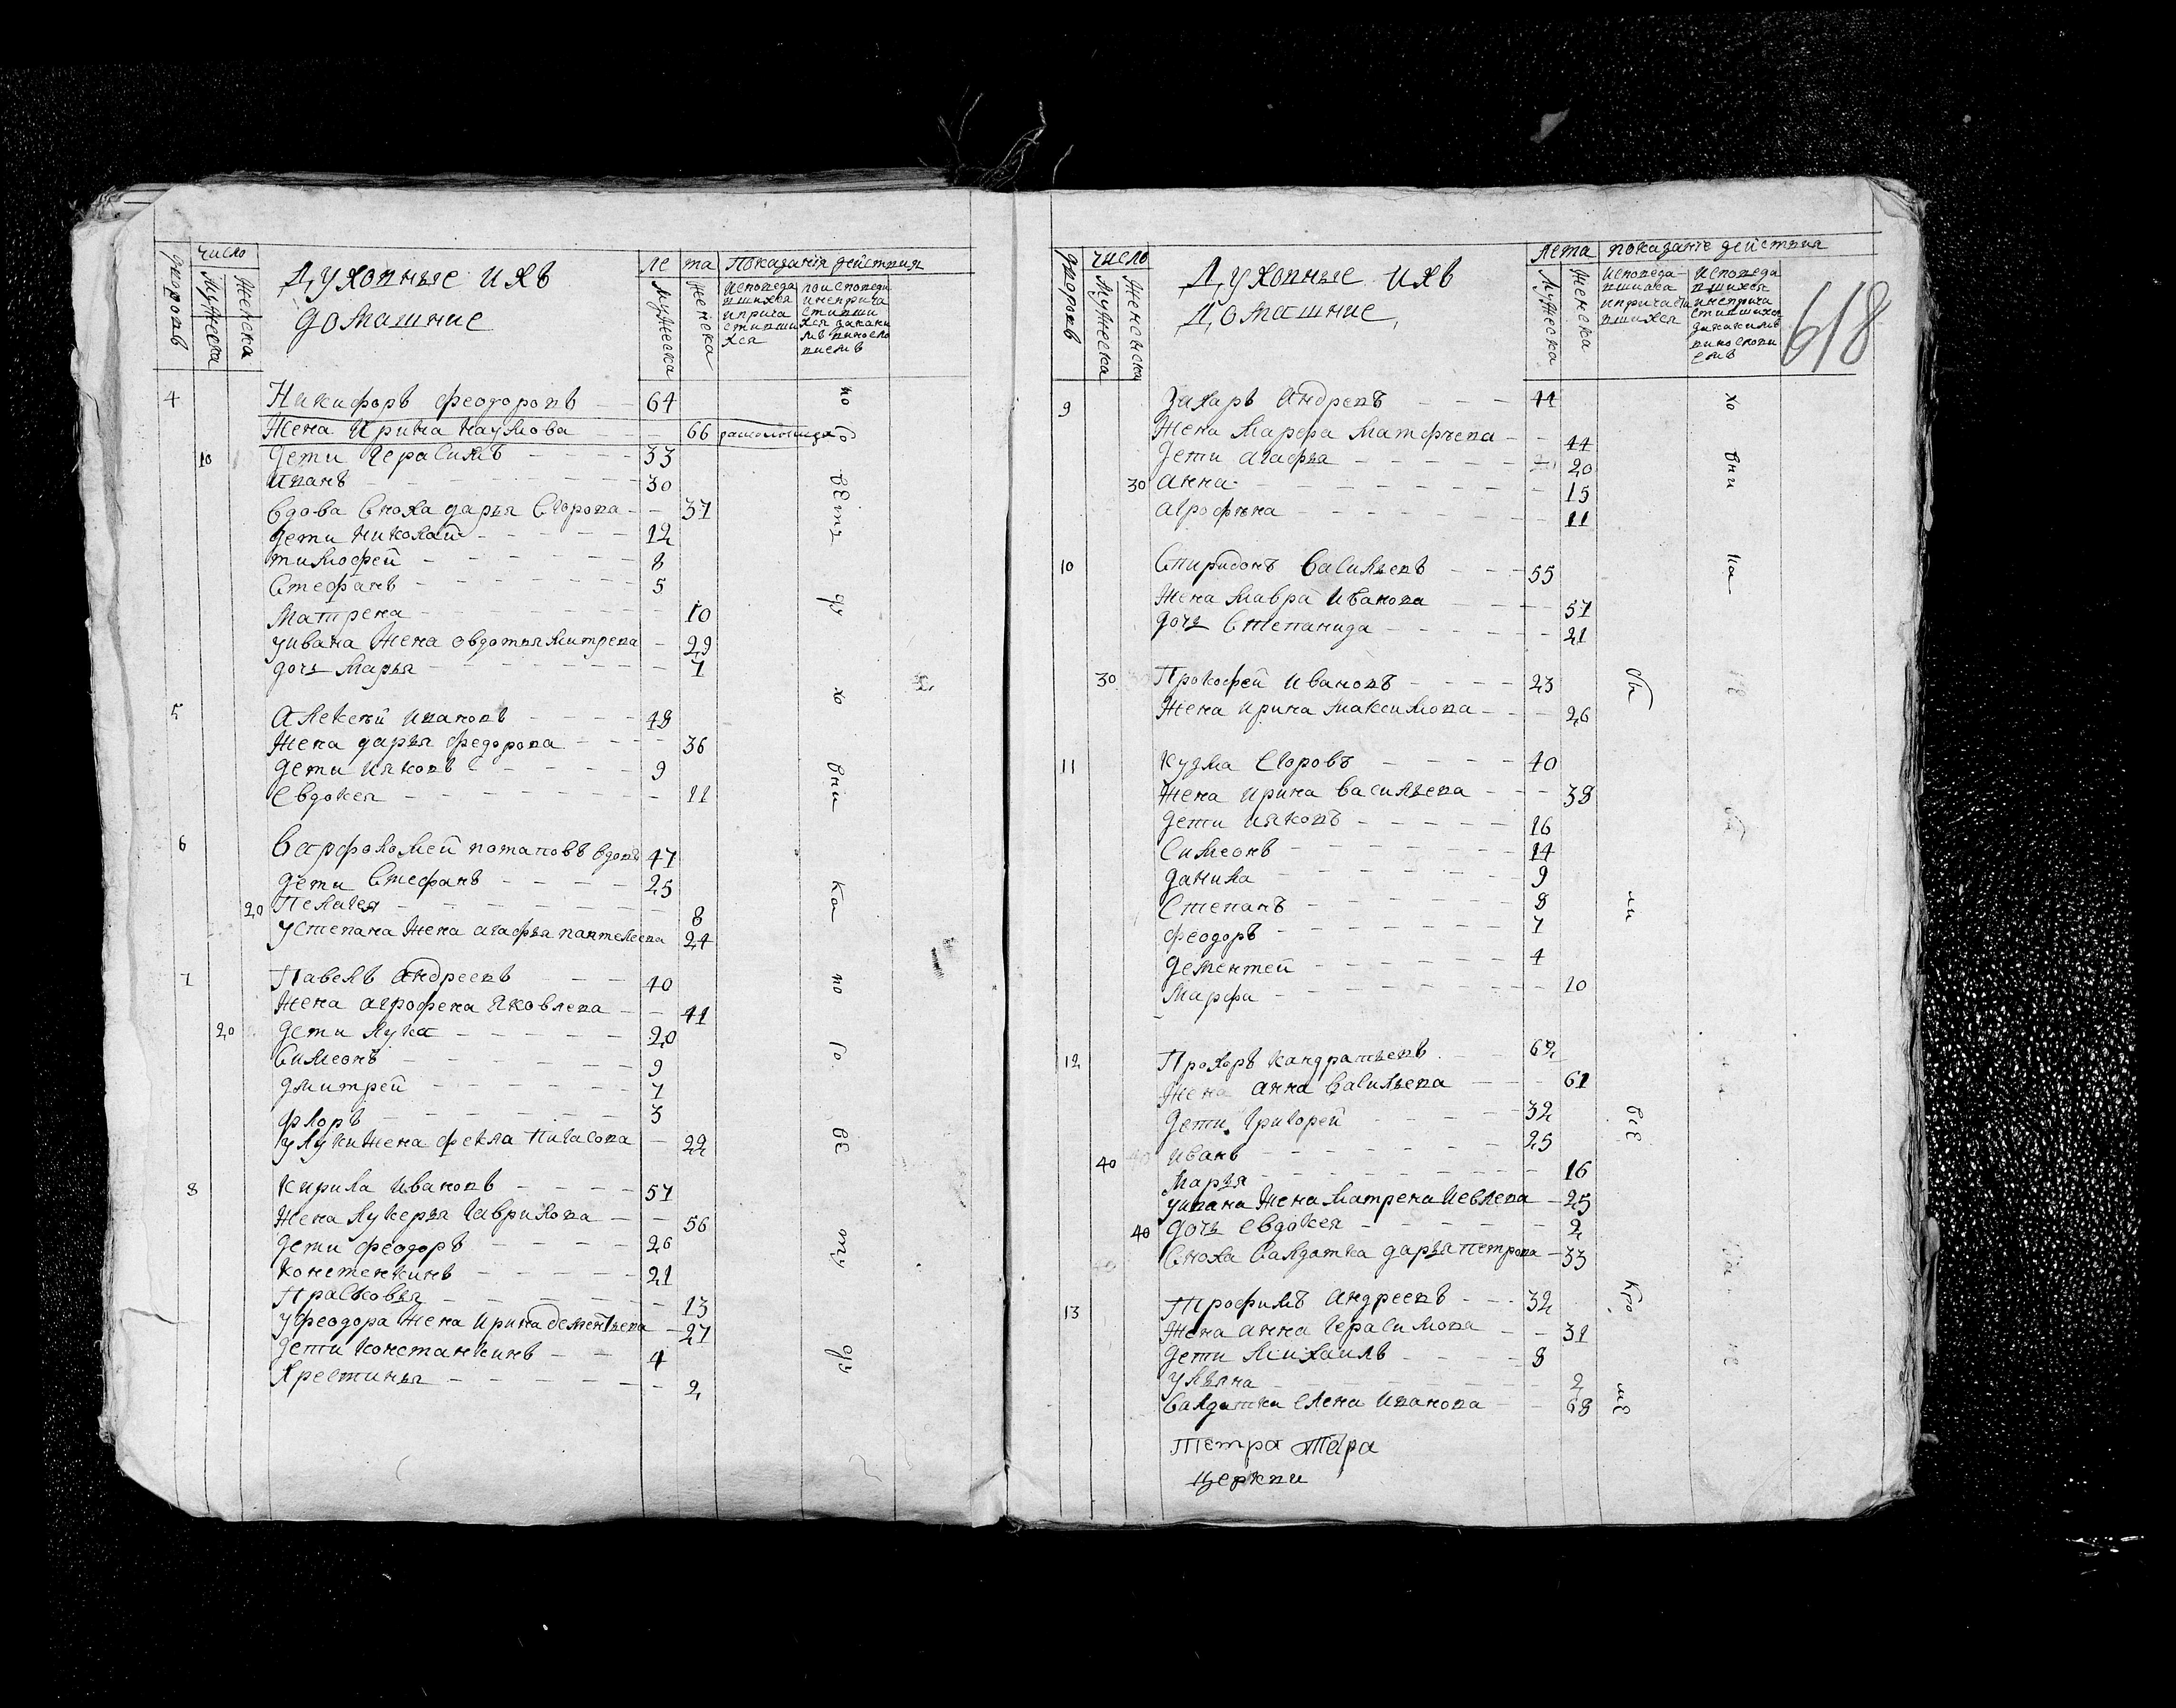 число
Ле та Показанїя действия
дворовъ
Мужеска
Женска
Духовные ихъ
домашние
мужеска
женска
исповеда
вшихся
и прича
стивши
хся
4 Никифоръ Феодоровъ 64
Жена Ирина Наумова 66
10 Дети Герасимъ 33
Иванъ 30
Вдова Сноха дарья Егорова 37
дети Николай 12
тимофей 8
Стефанъ 5
Матрена 10
У ивана жена овдотья митрева 29
дочь Марья 7
5 Алексей Ивановъ 48
Жена дарья федорова 36
дети Иаковъ 9
Евдокея 11
6 Варфоломей потаповъ вдовъ 47
дети Стефанъ 25
20 Пелагея 8
У Степана жена агафья пантелеева 24
7 Павелъ Андреевъ 40
Жена агрофена Яковлева 41
20 дети Лука 20
Симеонъ 9
дмитрей 7
Флоръ 3
У Луки жена фекла Пигасова 22
8 Кирила Ивановъ 57
Жена Лукерья Гаврилова 56
дети Феодоръ 26
Констенкинъ 21
Прасковья 13
У Феодора жена Ирина дементьева 27
дети Констанкинъ 4
Хрестинья 2
число
Лета показанїе действия
дворовъ
Мужеска
Женьска
Духовные ихъ
Домашние
Мужеска
Женска
618
9 Захаръ Андревъ 44
Жена Марфа Матфеева 44
Дети агафья 20
30 анна 15
агрофена 11
10 Спиридонъ Васильевъ 55
Жена Мавра Иванова 57
дочь Степанида 21
30 Прокофей Ивановъ 23
Жена Ирина Максимова 26
11 Кузма Егоровъ 40
Жена Ирина Васильева 38
дети Иаковъ 16
Симеонъ 14
данила 9
Степанъ 8
Феодоръ 7
дементей 4
Марфа 10
12 Прохоръ Кандратьевъ 62
Жена анна Васильева 61
дети Григорей 32
40 Иванъ 25
Марья 16
У ивана жена Матрена Иевлева 25
40 дочь Евдокея 2
Сноха Салдатка дарья петрова 33
13 Трофимъ Андреевъ 32
Жена анна Герасимова 31
дети Михаилъ 8
Ульяна 2
Салдатка Елена Иванова 68